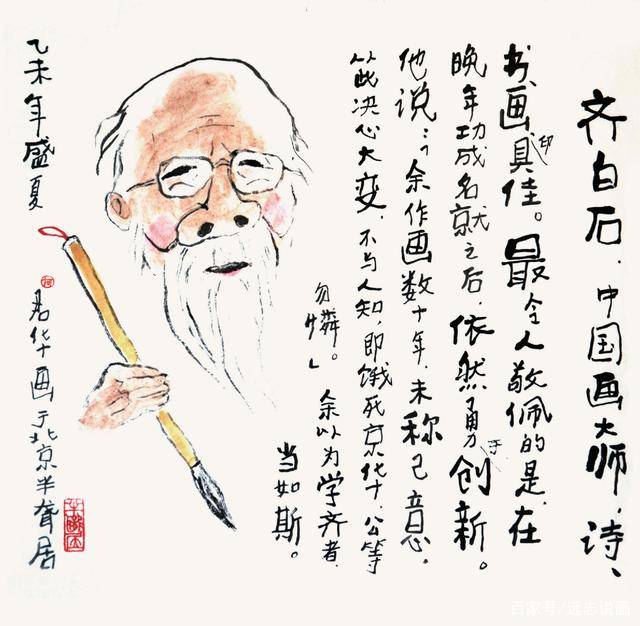 齐白石，中国画大师，诗、
书画印具佳。最令人敬佩的是，在
晚年功成名就之后，依然勇于创新。
他说：「余作画数十年，未称己意，
从此决心大变，不与人知，即饿死京华，公等
勿憐。」余以为学齐者，
当如斯。
乙未年盛夏
华画于北京半聋居
百家号/远志说画